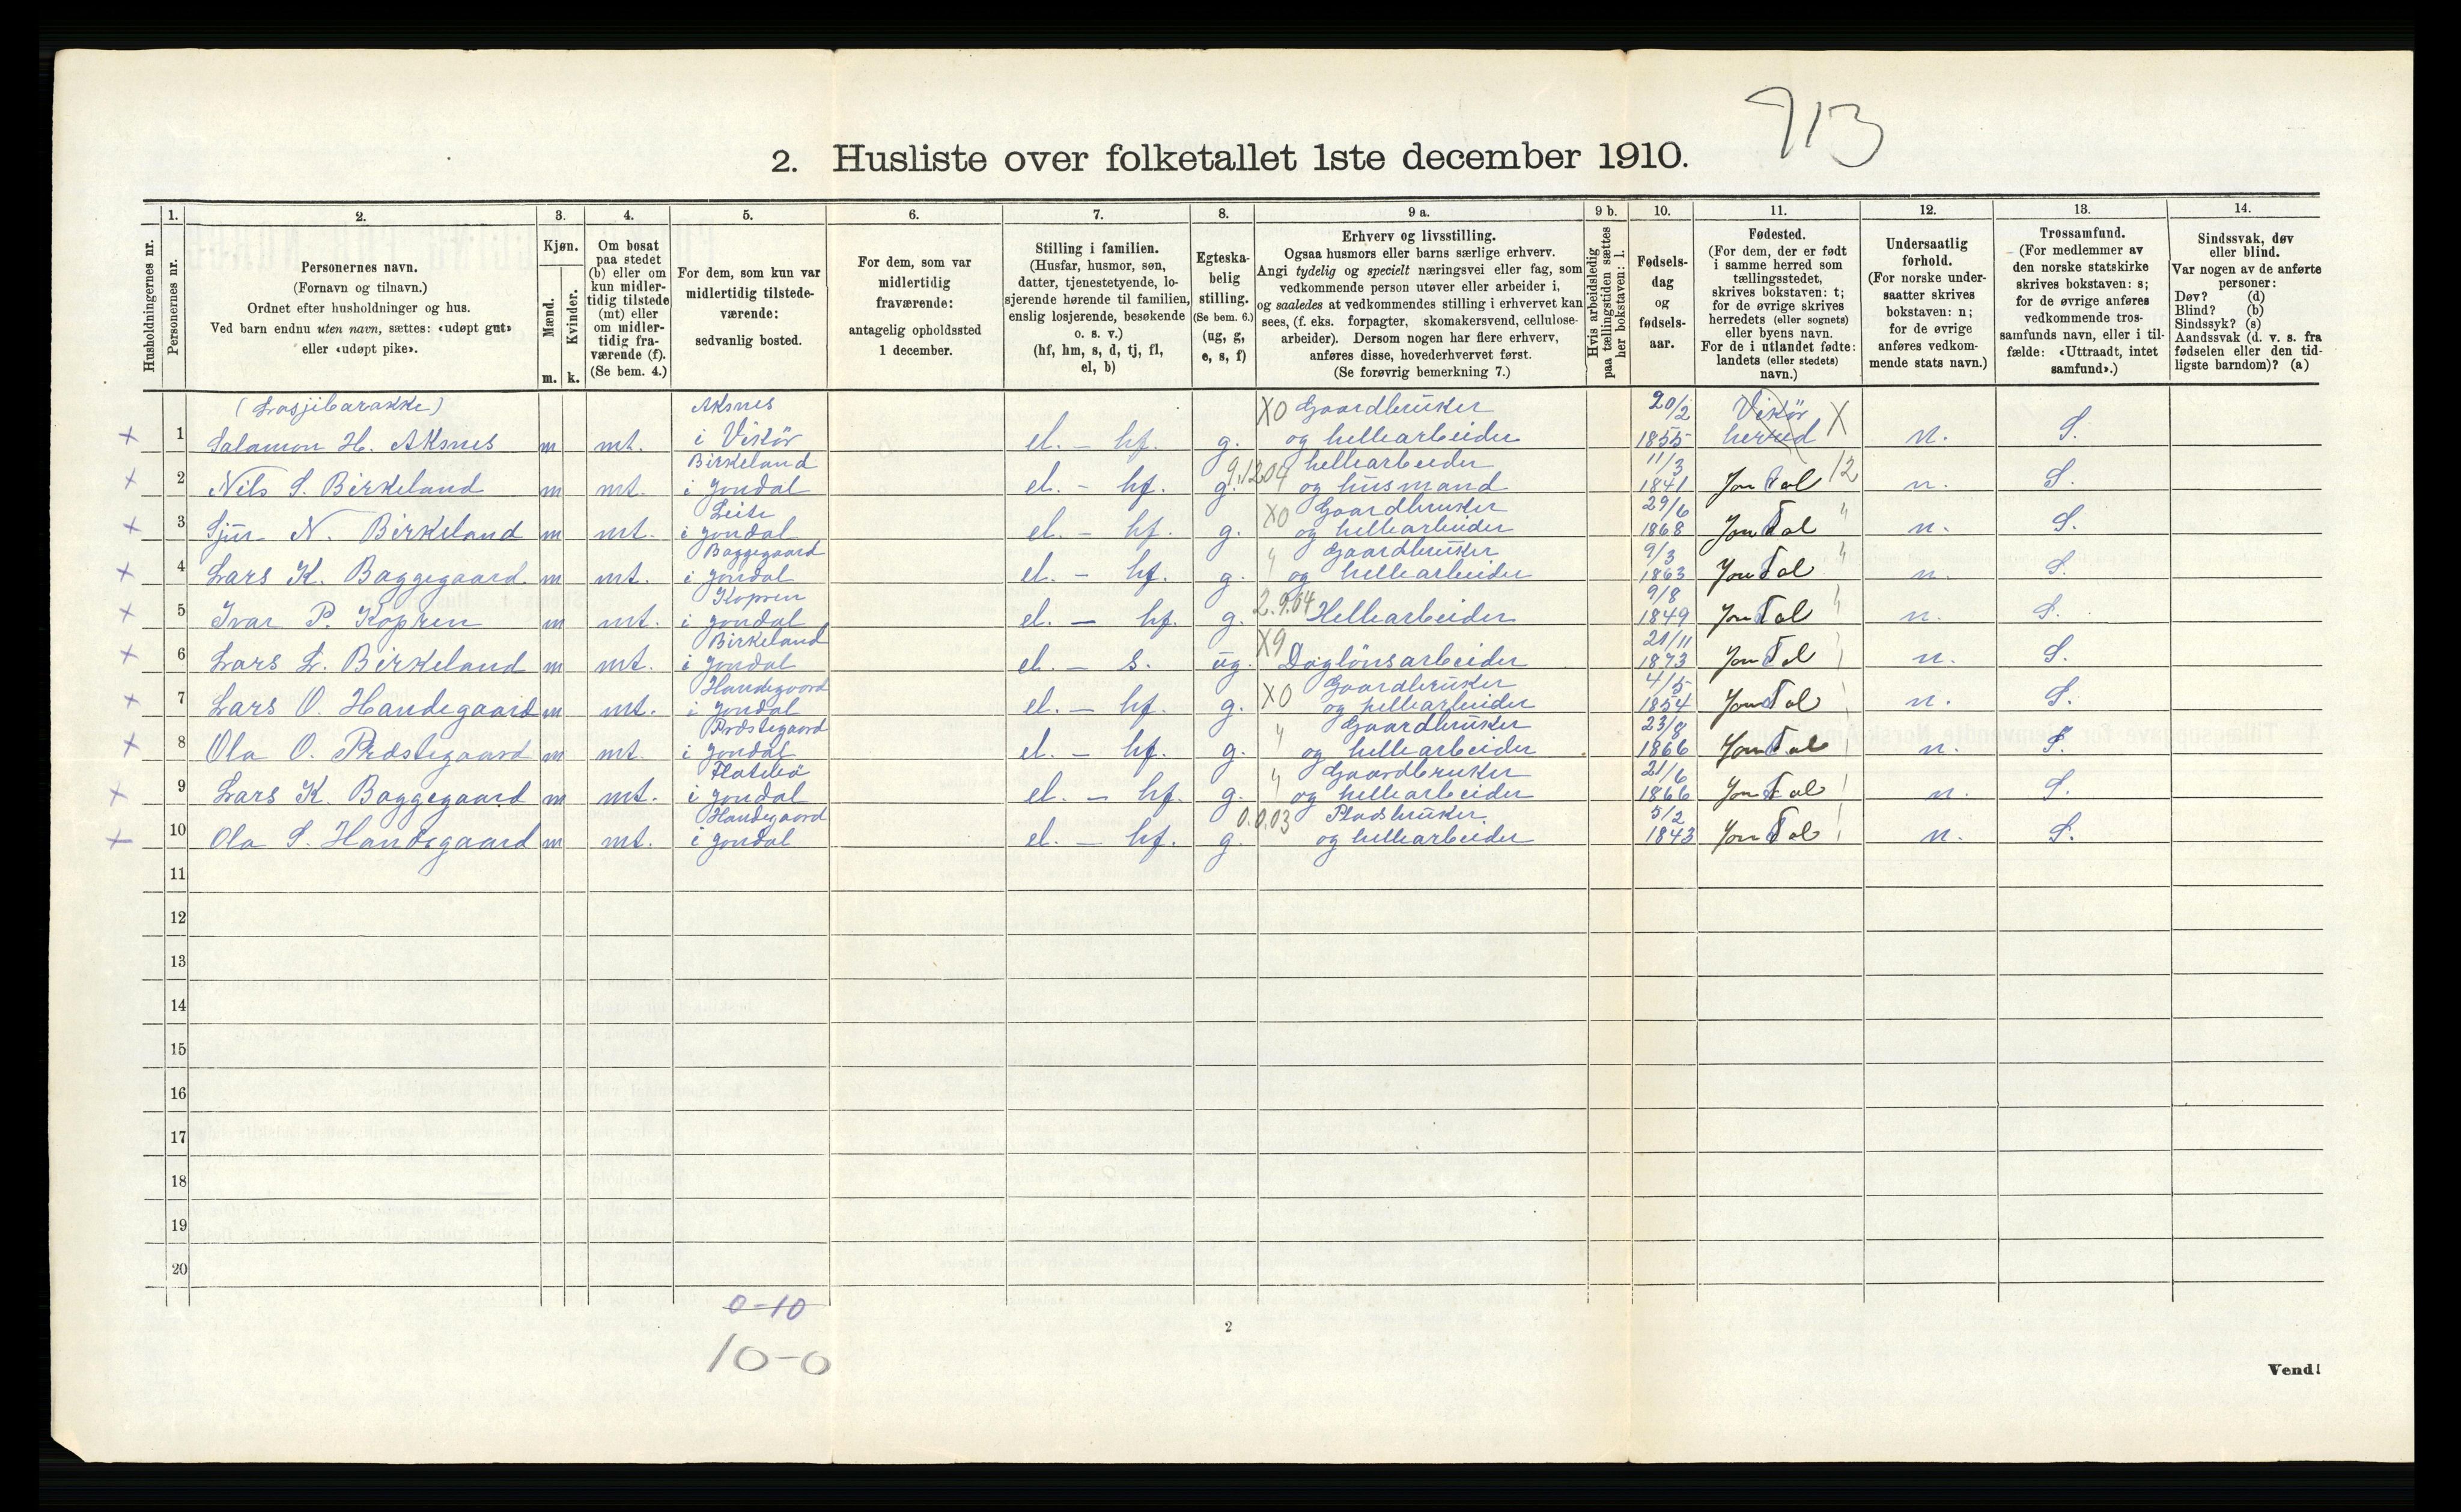 713
2. Husliste over folketallet 1ste december 1910.
Husholdningernes nr.
1. Personernes nr.
2. Personernes navn.
(Fornavn og tilnavn.)
Ordnet efter husholdninger og hus.
Ved barn endnu uten navn, sættes: «udøpt gut»
eller «udøpt pike».
3. Kjøn.
Mænd. Kvinder.
m. k.
4. Om bosat
paa stedet
(b) eller om
kun midler-
tidig tilstede
(mt) eller
om midler-
tidig fra-
værende (f).
(Se bem. 4.)
5. For dem, som kun var
midlertidig tilstede-
værende:
sedvanlig bosted.
6. For dem, som var
midlertidig
fraværende:
antagelig opholdssted
1 december.
7. Stilling i familien.
(Husfar, husmor, søn,
datter, tjenestetyende, lo-
sjerende hørende til familien,
enslig losjerende, besøkende
o. s. v.)
(hf, hm, s, d, tj, fl,
el, b)
8. Egteska-
belig
stilling.
(Se bem. 6.)
(ug, g,
e, s, f)
9 a. Erhverv og livsstilling.
Ogsaa husmors eller barns særlige erhverv.
Angi tydelig og specielt næringsvei eller fag, som
vedkommende person utøver eller arbeider i,
og saaledes at vedkommendes stilling i erhvervet kan
sees, (f. eks. forpagter, skomakersvend, cellulose-
arbeider). Dersom nogen har flere erhverv,
anføres disse, hovederhvervet først.
(Se forøvrig bemerkning 7.)
9 b. Hvis arbeidsledig
paa tællingstiden sættes
her bokstaven: l.
10. Fødsels-
dag
og
fødsels-
aar.
11. Fødested.
(For dem, der er født
i samme herred som
tællingsstedet,
skrives bokstaven: t;
for de øvrige skrives
herredets (eller sognets)
eller byens navn.
For de i utlandet fødte:
landets (eller stedets)
navn.)
12. Undersaatlig
forhold.
(For norske under-
saatter skrives
bokstaven: n;
for de øvrige
anføres vedkom-
mende stats navn.)
13. Trossamfund.
(For medlemmer av
den norske statskirke
skrives bokstaven: s;
for de øvrige anføres
vedkommende tros-
samfunds navn, eller i til-
fælde: «Uttraadt, intet
samfund».)
14. Sindssvak, døv
eller blind.
Var nogen av de anførte
personer:
Døv? (d)
Blind? (b)
Sindssyk? (s)
Aandssvak (d. v. s. fra
fødselen eller den tid-
ligste barndom)? (a)
(Losjibarakke) Aksnes X0 Gaardbruker 20/2 Vikör
x 1 Salamon H. Aksnes m mt. i Vikör el. - hf. g. og hellearbeider 1855 herred X n. S.
Birkeland 9.12.04 hellearbeider 11/3
x 2 Nils S. Birkeland m mt. i Jondal el. - hf. g. og husmand 1841 Jondal 12 n. S.
Leite X0 Gaardbruker 29/6
x 3 Sjur N. Birkeland m mt. i Jondal el. - hf. g. og hellearbeider 1868 Jondal " n. S.
Baggegaard " Gaardbruker 9/3
x 4 Lars K. Baggegaard m mt. i Jondal el. - hf. g. og hellearbeider 1863 Jondal " n. S.
Kopren 9/8
x 5 Ivar P. Kopren m mt. i Jondal el. - hf. g. 2.9.04 Hellearbeider 1849 Jondal " n. S.
Birkeland X9 21/11
x 6 Lars L. Birkeland m mt. i Jondal el. - s. ug. Daglönsarbeider 1873 Jondal " n. S.
Handegaard X0 Gaardbruker 4/5
x 7 Lars O. Handegaard m mt. i Jondal el. - hf. g. og hellearbeider 1854 Jondal " n. S.
Præstegaard " Gaardbruker 23/8
x 8 Ola O. Præstegaard m mt. i Jondal el. - hf. g. og hellearbeider 1866 Jondal " n. S.
Flatebö " Gaardbruker 21/6
x 9 Lars K. Baggegaard m mt. i Jondal el. - hf. g. og hellearbeider 1866 Jondal " n. S.
Handegaard 0.0.03 Pladsbruker 5/2
x 10 Ola S. Handegaard m mt. i Jondal el. - hf. g. og hellearbeider 1843 Jondal " n. S.
11
12
13
14
15
16
17
18
19
20
0-10
2
10-0
Vend!